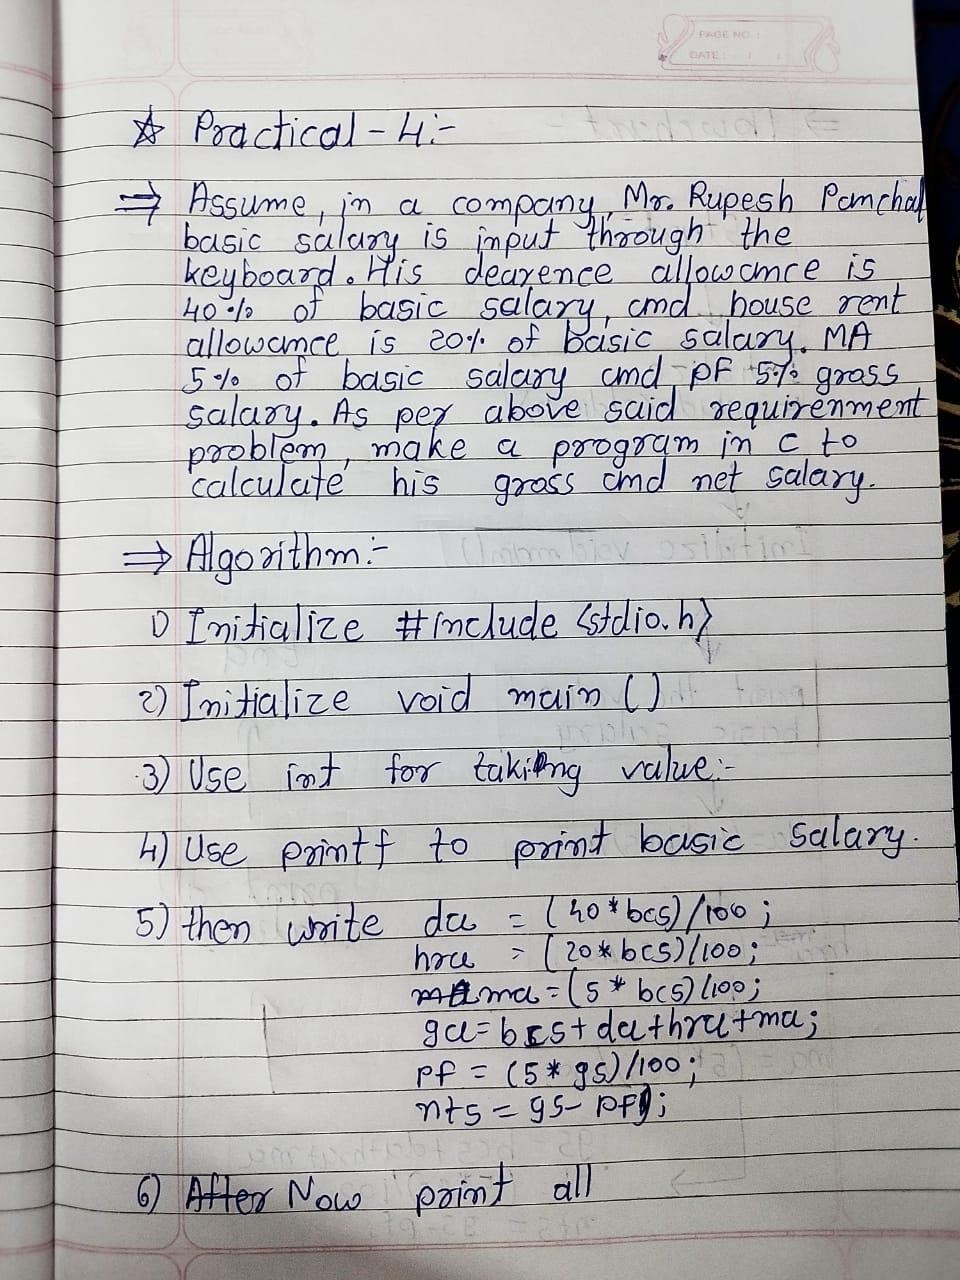 PAGE NO :
DATE : / /
☆ Practical - 4:-
⇒ Assume, in a company, Mr. Rupesh Panchal
basic salary is input through the
keyboard. His dearence allowance is
40% of basic salary, and house rent
allowance is 20% of basic salary. MA
5% of basic salary and PF 5% gross
salary. As per above said requirenment
problem, make a program in c to
calculate his gross and net salary.
⇒ Algorithm:-
1) Initialize #include <stdio.h>
2) Initialize void main ()
3) Use int for taking value:-
4) Use printf to print basic salary.
5) then write da = (40*bcs)/100;
hra = (20*bcs)/100;
ma = (5*bcs)/100;
ga = bcs+da+hra+ma;
pf = (5*gs)/100;
nts = gs-pf;
6) After Now print all